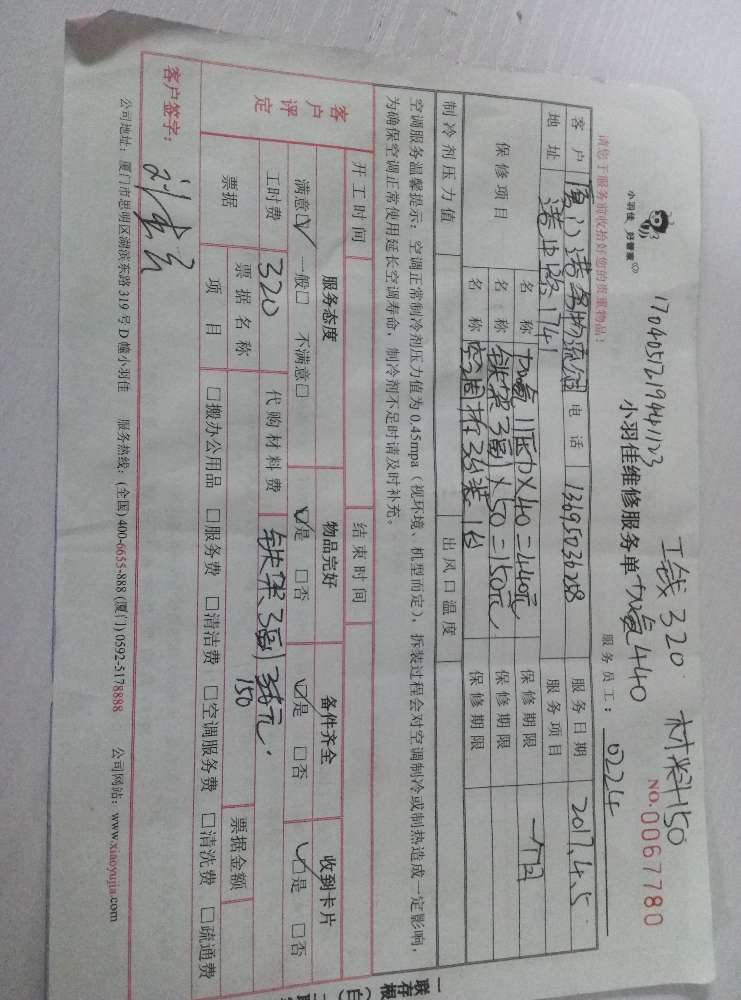 小羽佳 好管家
请您于服务前收拾好您的贵重物品!
17040512194411123
工钱320 材料150
小羽佳维修服务单 加氟440
NO.0067780
服务员工: 0224
客户 电话 13695036288 服务日期 2017.4.5
地址 服务项目
保修项目 名称 保修期限 一个月
名称 铁架3副×50=150元 保修期限
名称 保修期限
制冷剂压力值 出风口温度
空调服务温馨提示:空调正常制冷剂压力值为0.45mpa(视环境、机型而定),拆装过程会对空调制冷或制热造成一定影响,
为确保空调正常使用延长空调寿命,制冷剂不足时请及时补充。
开工时间 结束时间
客户评定 服务态度 物品完好 备件齐全 收到卡片
满意☑ 一般□ 不满意□ ☑是 □否 ☑是 □否 ☑是 □否
工时费 320 代购材料费 铁架3副 150
票据 票据名称 票据金额
项目 □搬办公用品 □服务费 □清洁费 □空调服务费 □清洗费 □疏通费
客户签字:
公司地址:厦门市思明区湖滨东路319号D幢小羽佳 服务热线:(全国)400-6655-888 (厦门)0592-5178888 公司网站:www.xiaoyujia.com